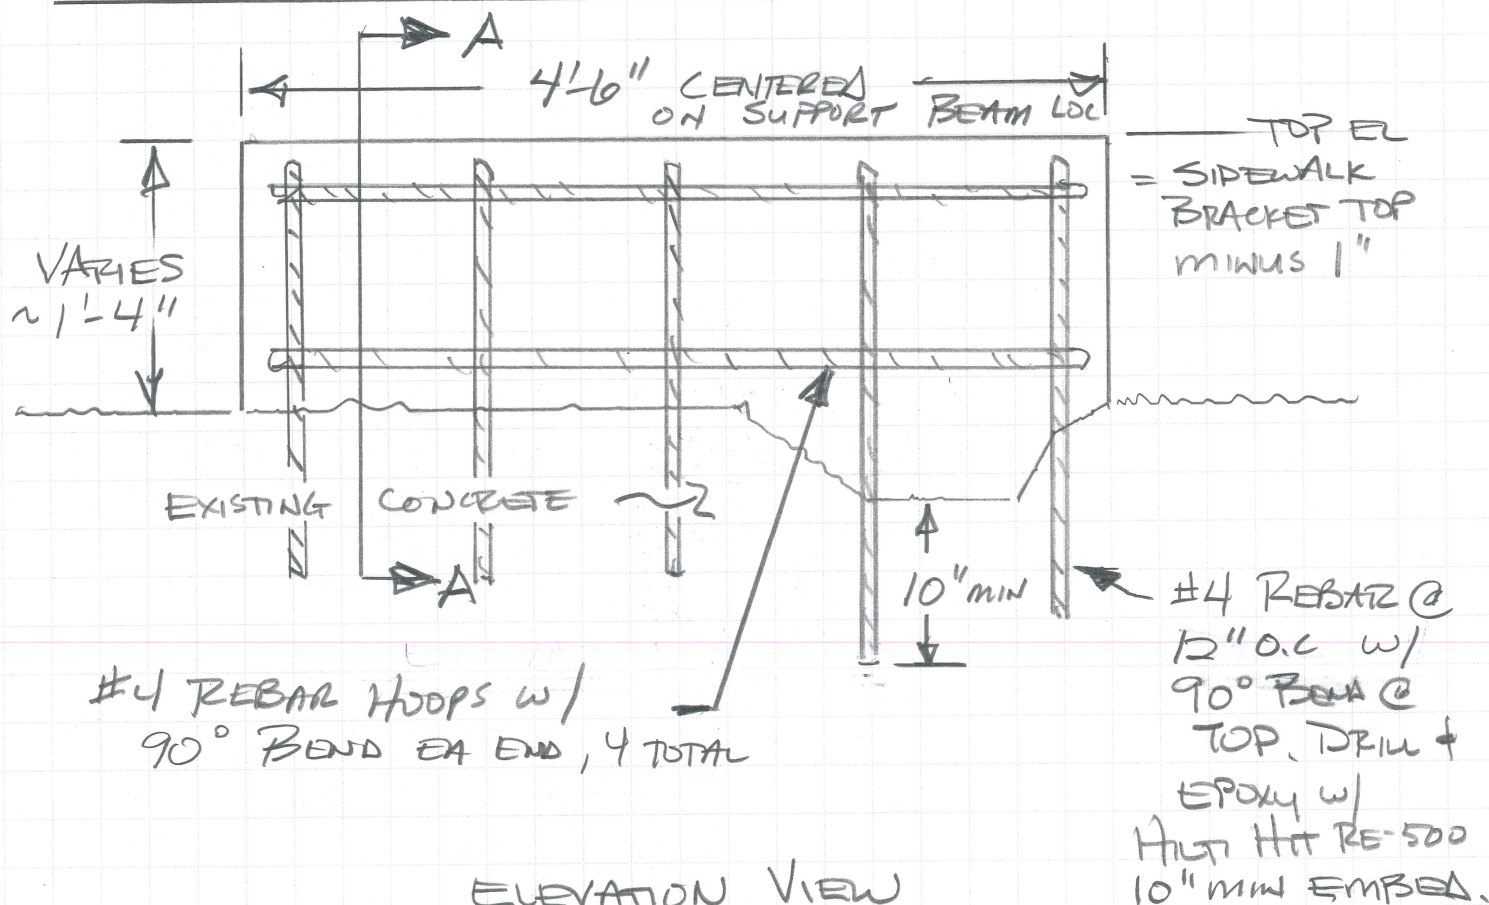 A
4'-6" CENTERED
ON SUPPORT BEAM LOC
TOP EL
= SIDEWALK
BRACKET TOP
MINUS 1"
VARIES
~1'-4"
EXISTING CONCRETE
A
10" MIN
#4 REBAR @
12" O.C W/
90° BEND @
TOP. DRILL &
EPOXY W/
HILTI HIT RE-500
10" MIN EMBED.
#4 REBAR HOOPS W/
90° BEND EA END, 4 TOTAL
ELEVATION VIEW